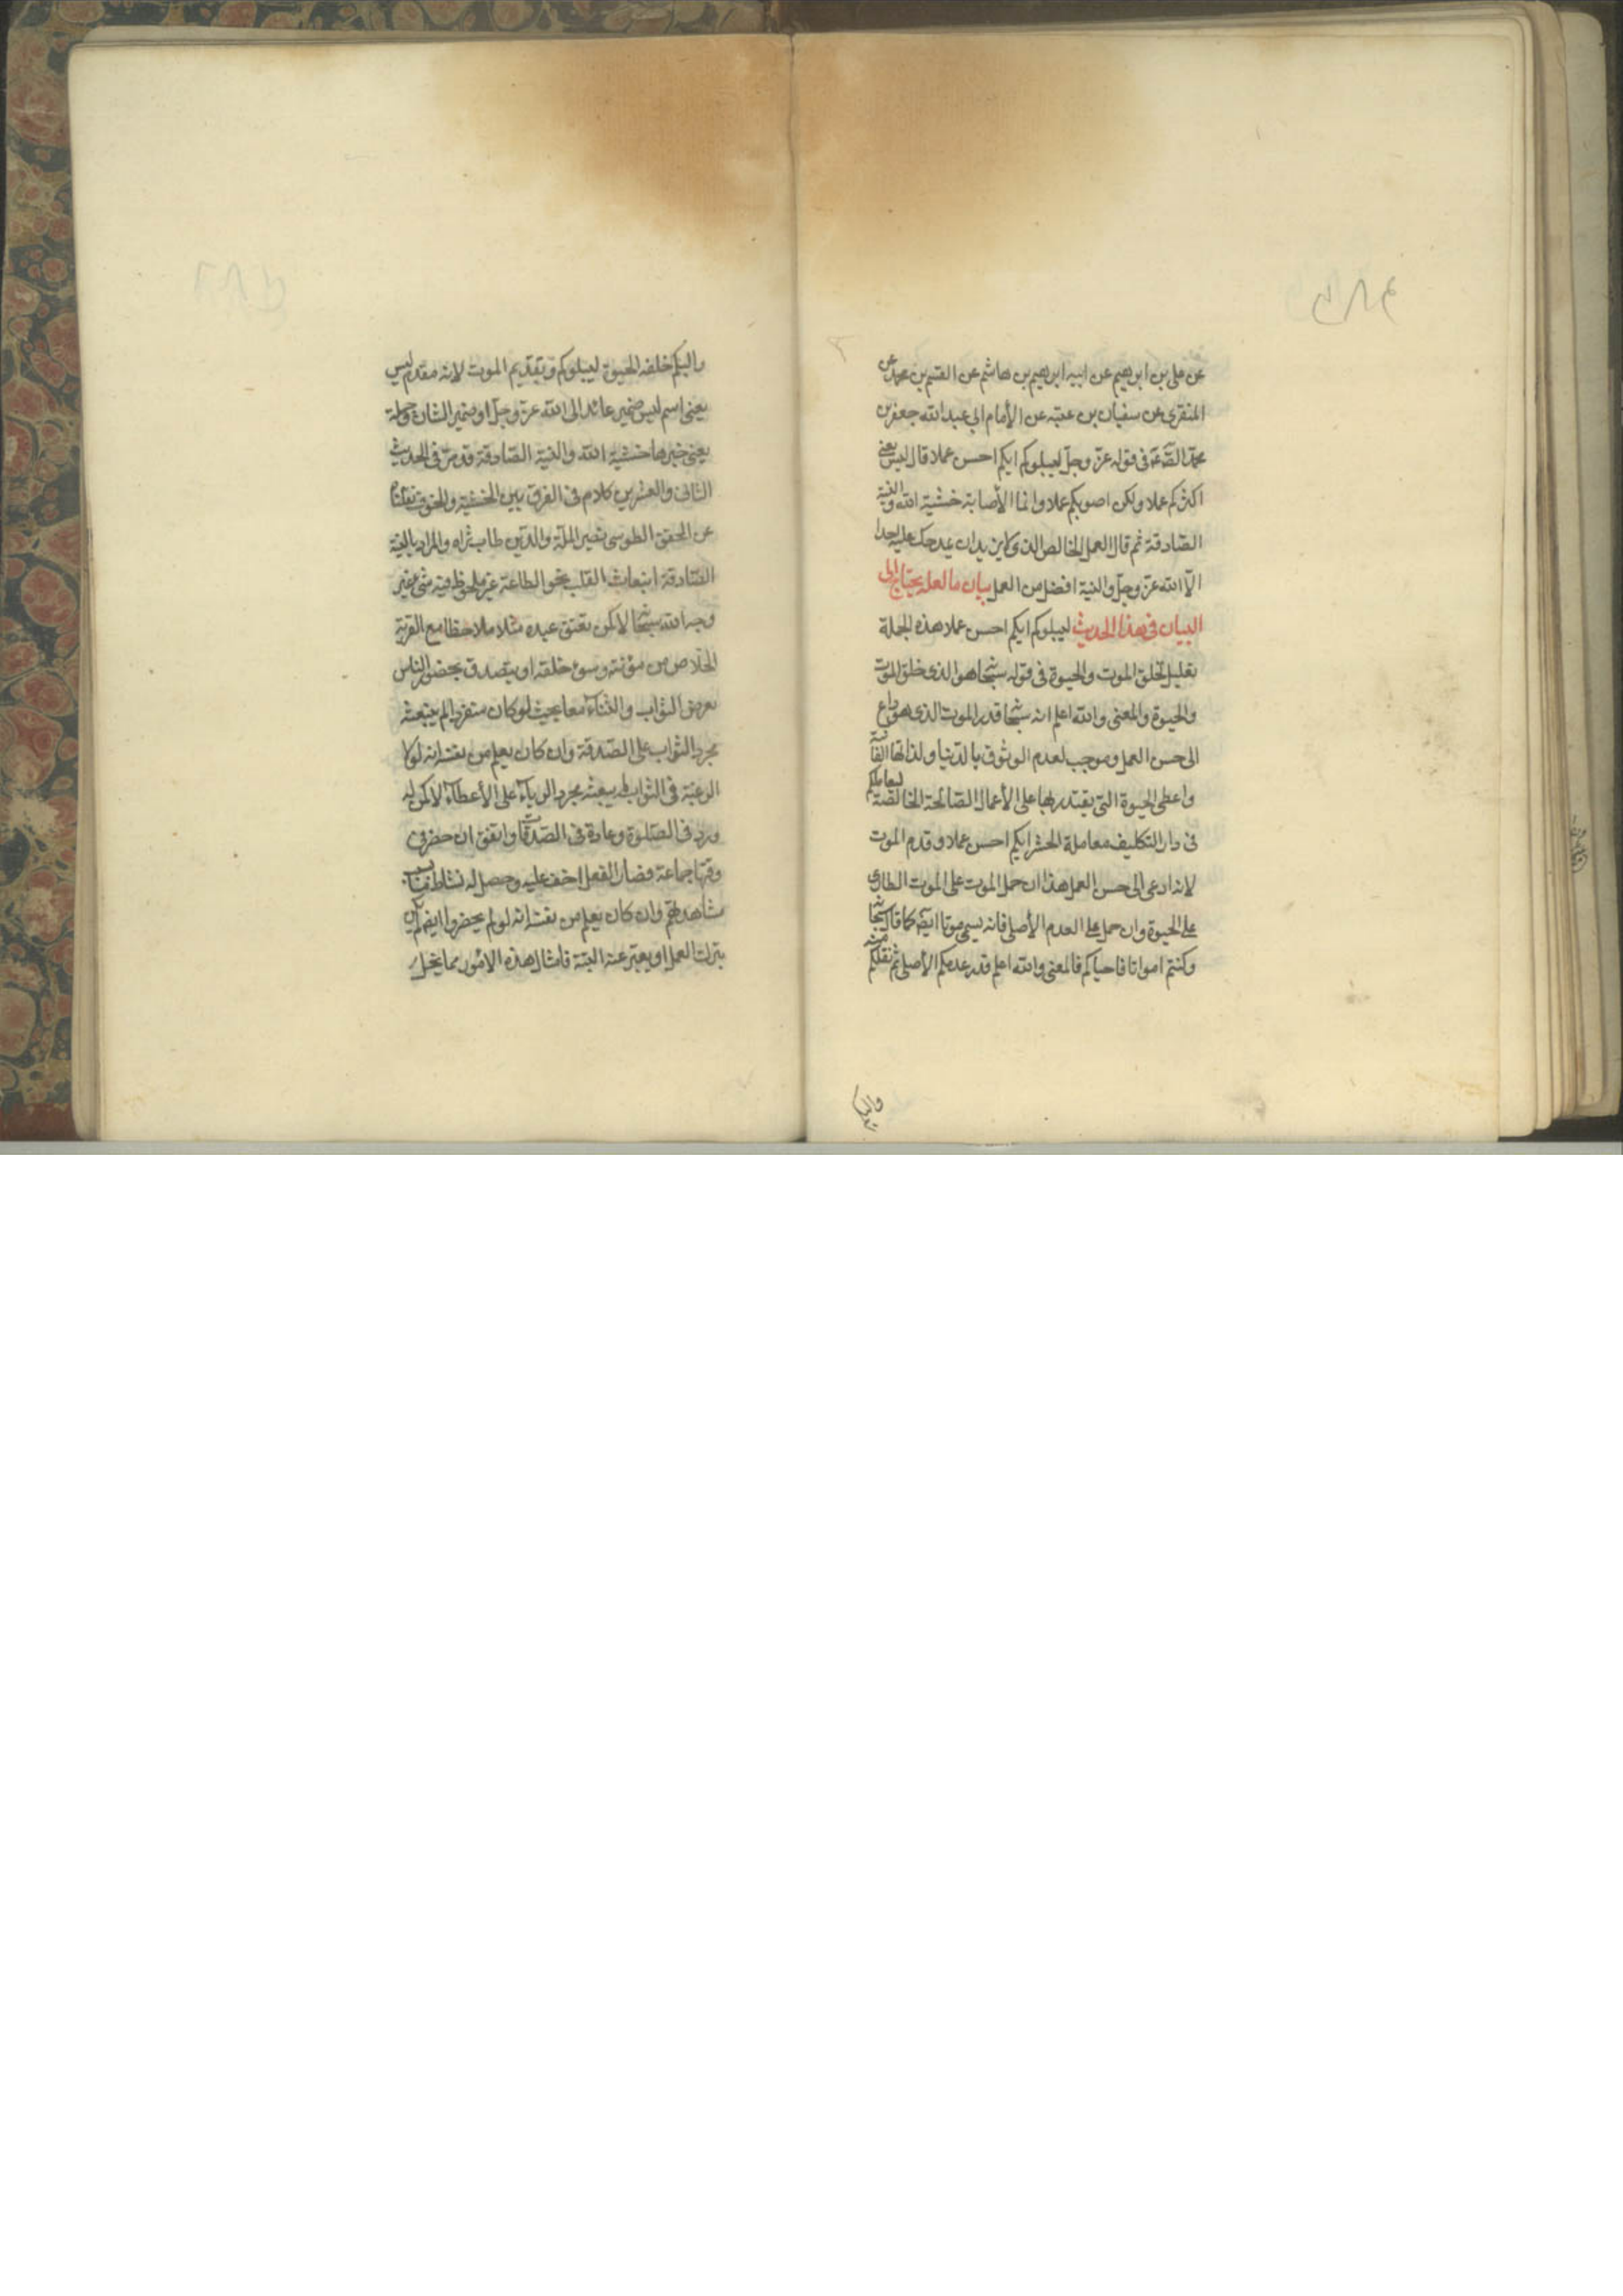 عن علی بن ابرهیم عن ابیه ابرهیم بن هاشم عن القسیم بن محمد عن
المنقری عن سفیان بن عینه عن الأمام ابی عبدالله جعفر بن
محمد الصّ ع فی قوله عزّ وجلّ لیبلوکم ایکم احسن عملا قال لیس یعنی
اکثرکم عملا ولکن اصوبکم عملا وانما الأصابة خشیة الله و النیة
الصّادقة ثم قال العمل الخالص الذی لا یزید ان یمدحک علیه احدا
الّا الله عزّ وجلّ والنیة افضل من العمل بیان ما لعله یحتاج الی
البیان فی هذا الحدیث لیبلوکم ایکم احسن عملا هذه الجملة
تعلیل لخلق الموت والحیوة فی قوله سبحا هو الذی خلق الموت
والحیوة والمعنی والله اعلم انه سبحا قدر الموت الذی هو داع
الی حسن العمل وموجب لعدم الوثوق بالدّنیا ولذاتها الفانیة
واعطی الحیوة التی یقتدر بها علی الأعمال الصّالحة الخالصة لیعاملکم
فی دار التکلیف معاملة المختبر ایکم احسن عملا وقدم الموت
لانه ادعی الی حسن العمل هذا ان حمل الموت علی الموت الطاری
علی الحیوة وان حمل علی العدم الأصلی فانه یسمی موتا ایضا کما قال سبحا
وکنتم امواتا فاحیاکم فالمعنی والله اعلم قدر عدمکم الأصلی ثم نقلکم منه
والبسکم
والبسکم خلعة الحیوة لیبلوکم وتقدیم الموت لانه مقدم لیس
یعنی اسم لیس ضمیر عائد الی الله عزّ وجلّ او ضمیر الشان وجملة
یعنی خبرها خشیة الله والنیة الصّادقة قد مرّ فی الحدیث
الثانی والعشرین کلام فی الفرق بین الخشیة والخوف نقلناه
عن المحقق الطوسی نصیر الملّة والدّین طاب ثراه والمراد بالنیة
الصّادقة انبعاث القلب نحو الطاعة غیر ملحوظ فیه شئ غیر
وجه الله سبحا لا کمن یعتق عبده مثلا ملاحظا مع القربة
الخلاص من مؤنته وسوء خلقه او یتصدق بحضور الناس
لغرض الثواب والثناء معا بحیث لو کان منفردا لم یبعثه
مجرد الثواب علی الصّدقة وان کان یعلم من نفسه انه لولا
الرغبة فی الثواب لم یبعثه مجرد الریاء علی الأعطاء لا کمن له
ورد فی الصّلوة وعادة فی الصّدقات واتفق ان حضر فی
وقتها جماعة فصار الفعل اخف علیه وحصل له نشاط ما بسبب
مشاهدتهم وان کان یعلم من نفسه انه لو لم یحضروا ایضا لم یکن
یترک العمل او یفتر عنه البتة فامثال هذه الامور مما یخل